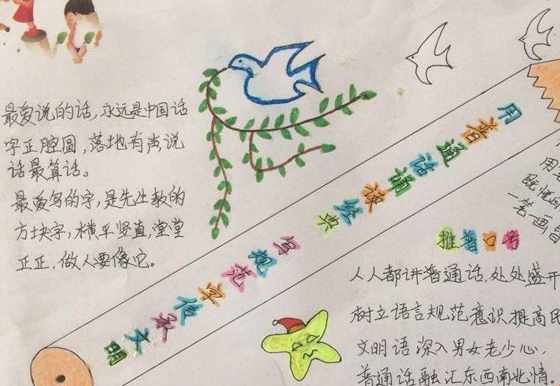 最爱说的话,永远是中国话
字正腔圆,落地有声说
话最算话。
最爱写的字,是先生教的
方块字,横平竖直,堂堂
正正,做人要像它。
用普通话诵读经典
写规范字传承文明
推普口号
人人都讲普通话,处处盛开
树立语言规范意识提高民
文明语深入男女老少心,
普通话融汇东西南北情